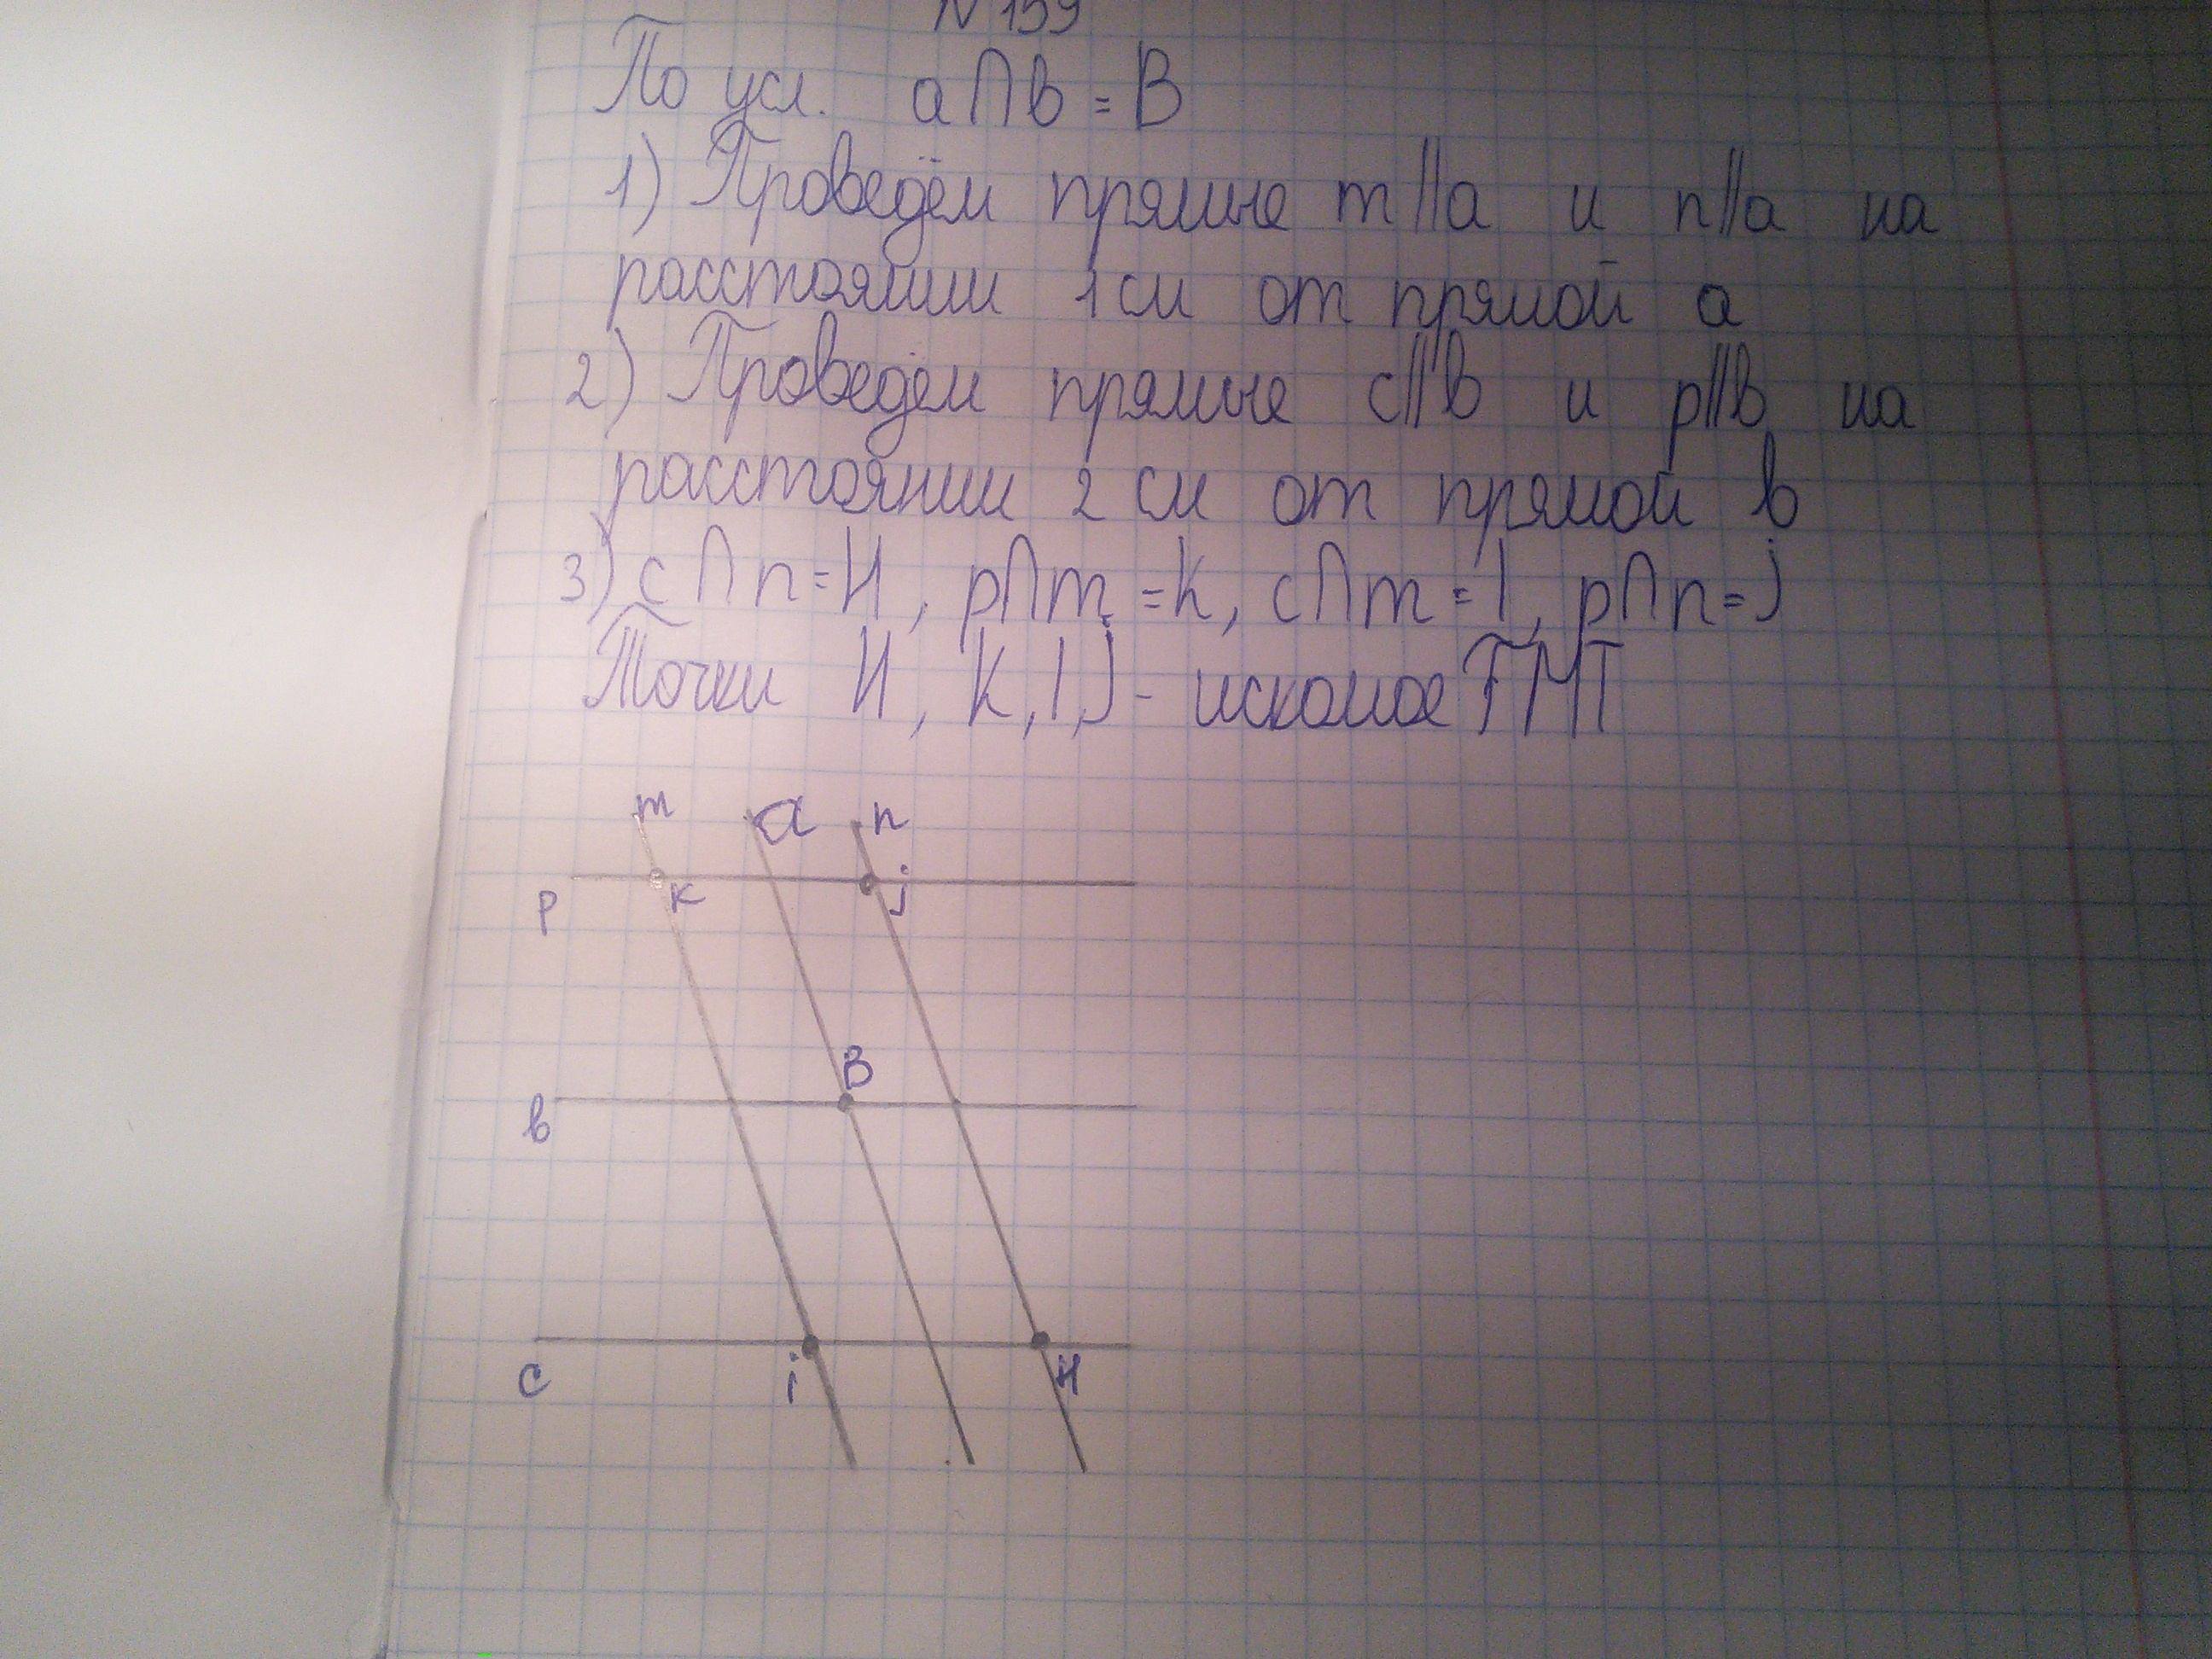 N 159
По усл. a∩b = B
1) Проведём прямые m||a и n||a на
расстоянии 1 см от прямой a
2) Проведём прямые c||b и p||b на
расстоянии 2 см от прямой b
3) c∩n=H, p∩m=K, c∩m=I, p∩n=J
Точки H, K, I, J - искомое ГМТ
m a n
p K j
B
b
c i H